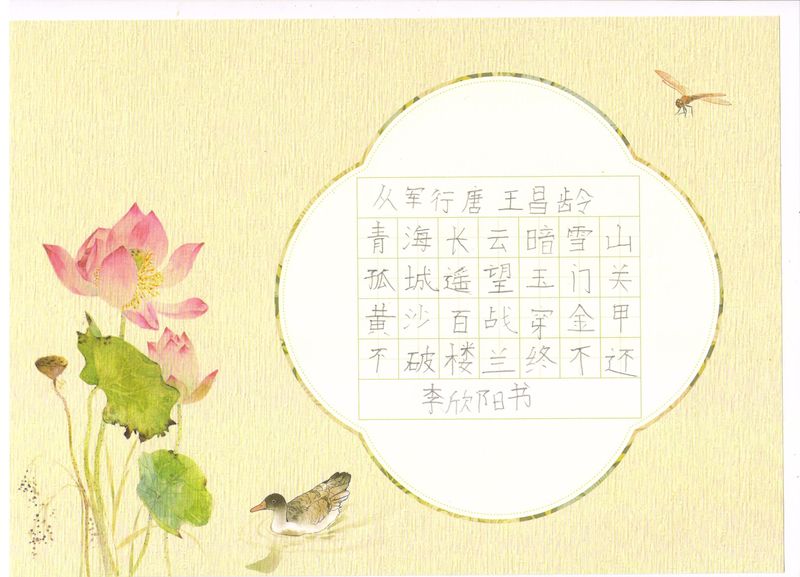 从军行唐 王昌龄
青海长云暗雪山
孤城遥望玉门关
黄沙百战穿金甲
不破楼兰终不还
李欣阳书